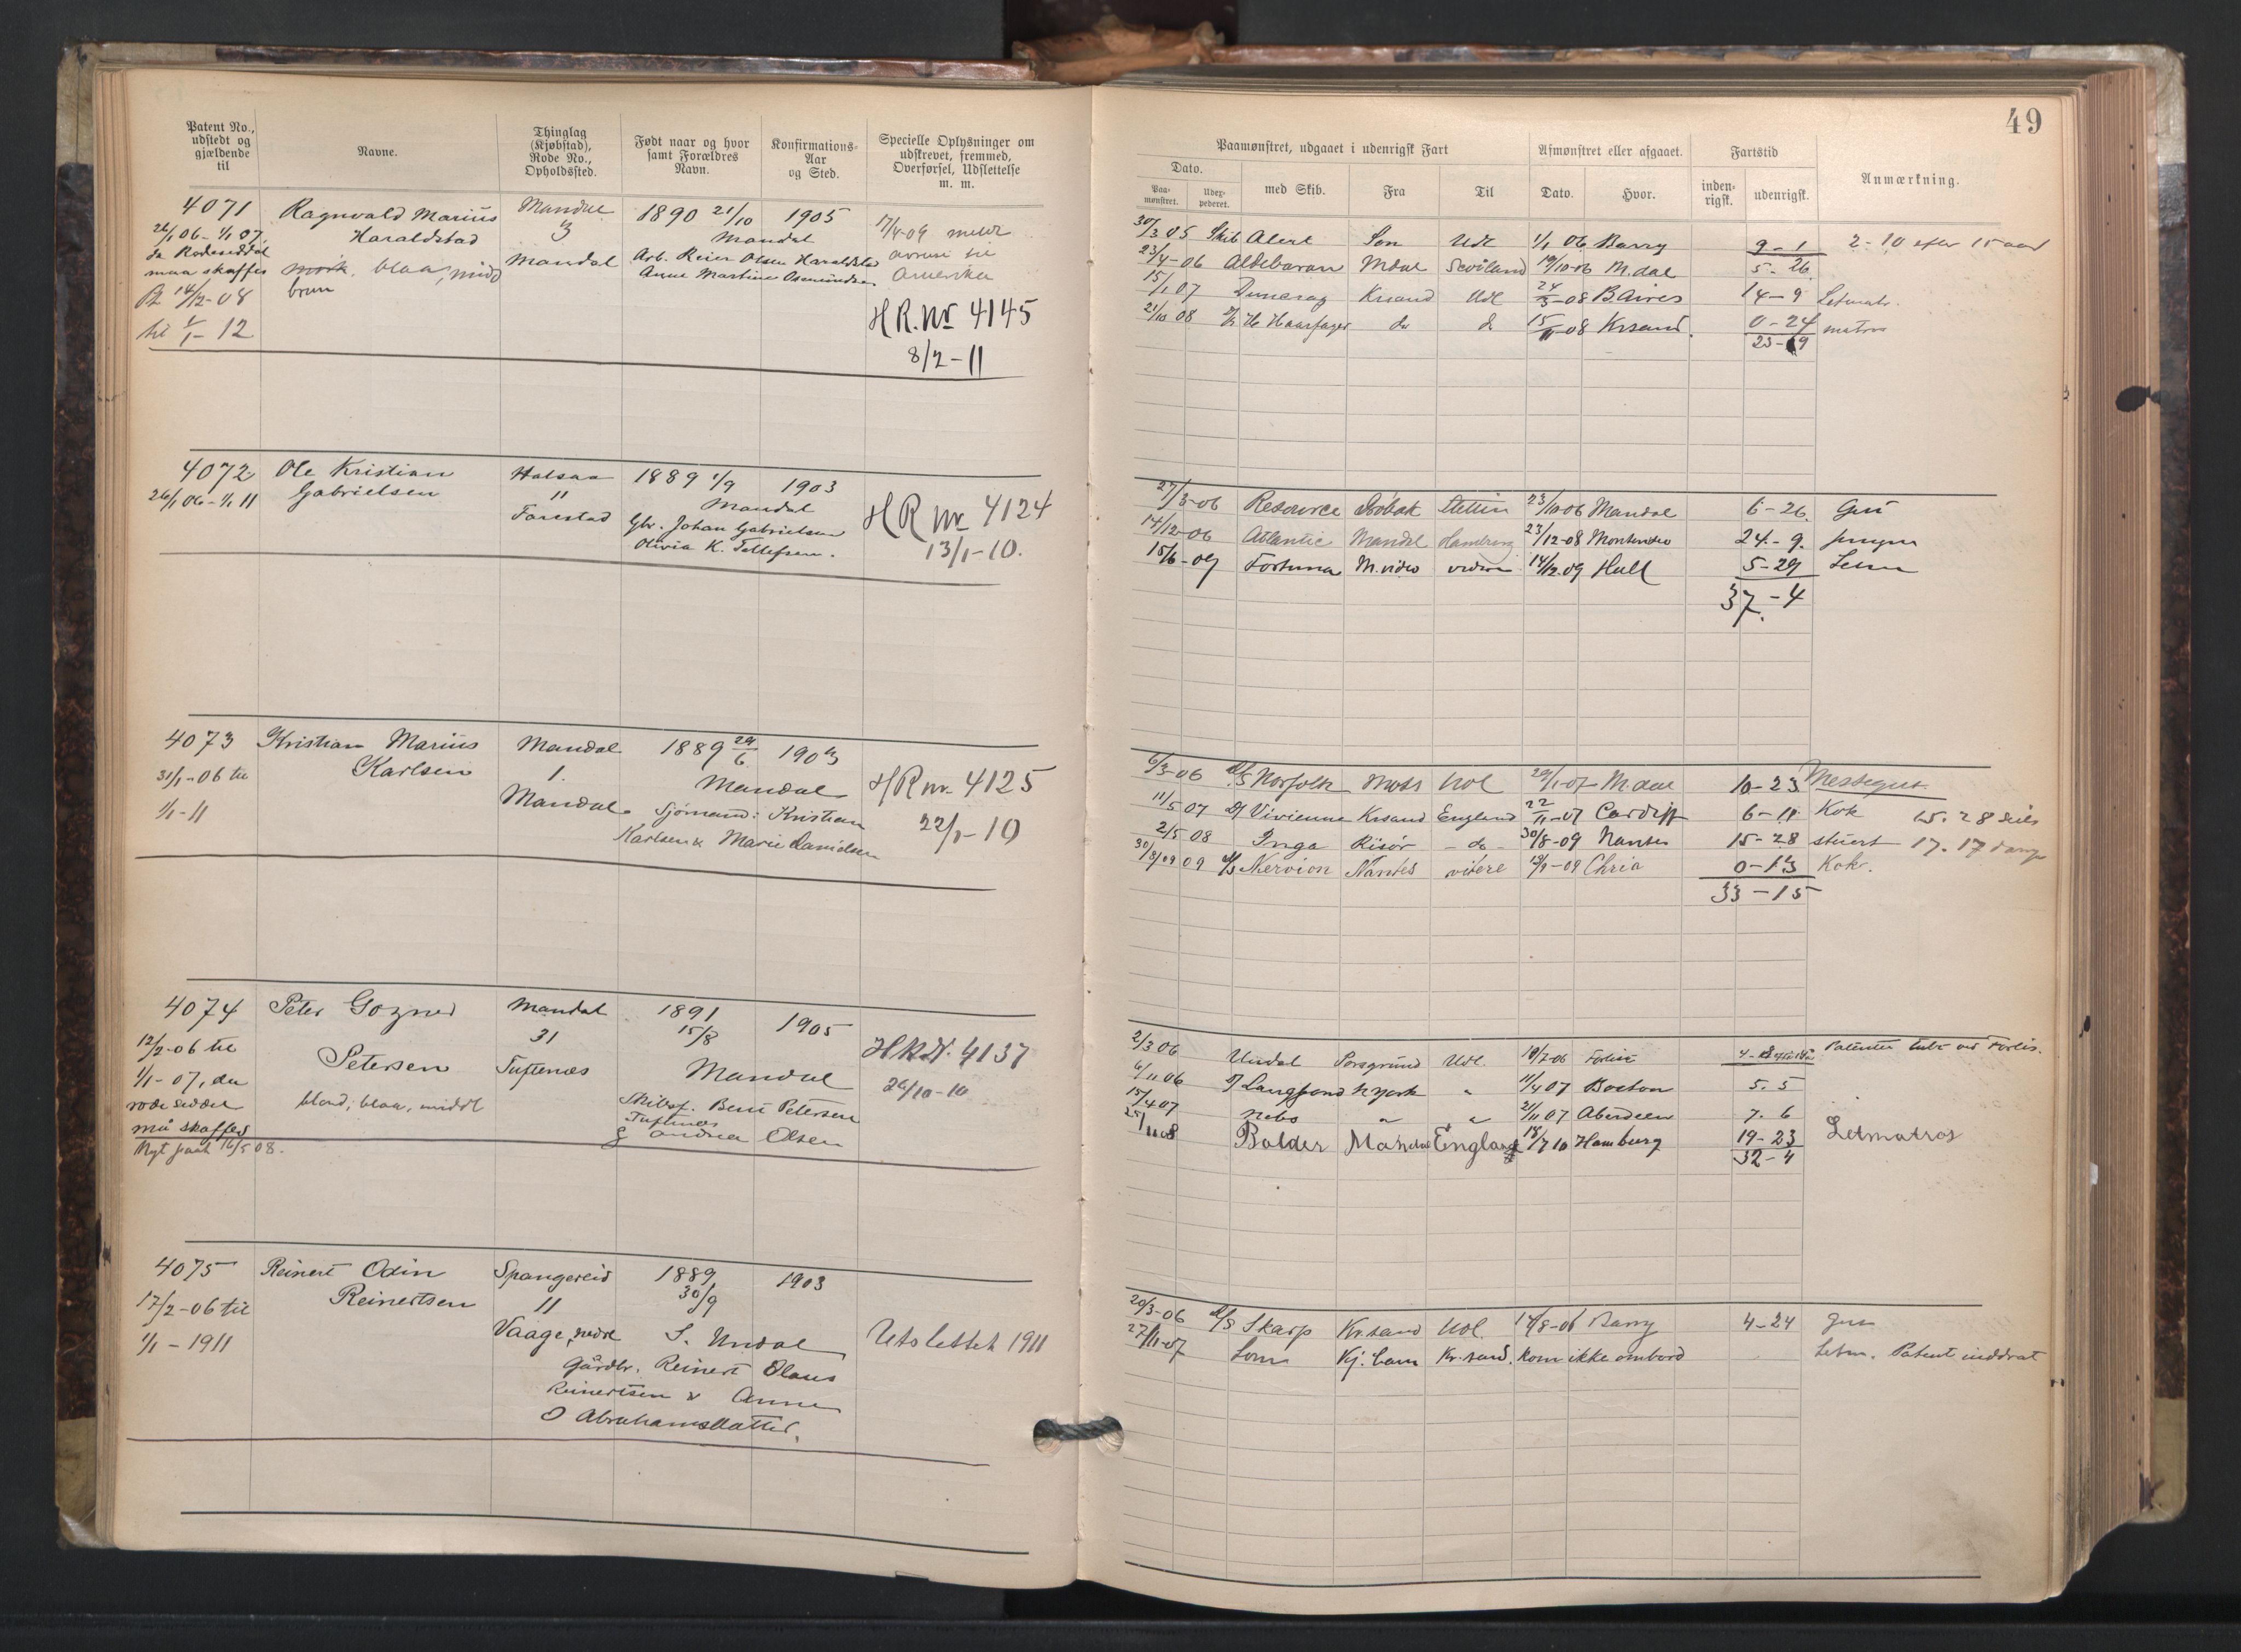 49
Patent No., udstedt og gjældende til
Navne.
Thinglag (Kjøbstad), Rode No., Opholdssted.
Født naar og hvor samt Forældres Navn.
Konfirmations-Aar og Sted.
Specielle Oplysninger om udskrevet, fremmed, Overførsel, Udslettelse m. m.
Paamønstret, udgaaet i udenrigsk Fart
Afmønstret eller afgaaet.
Fartstid
Anmærkning.
Dato.
Paa-mønstret.
Uder-pederet.
med Skib.
Fra
Til
Dato.
Hvor.
inden-rigsk.
udenrigsk.
4071 Ragnvald Marius Mandal 1890 21/10 1905 17/4-09
26/1 06 - 1/1 07, Haraldstad 3 Mandal
da Rodeseddel Mandal Arb. Reier Olsen Haraldstad
maa skaffes mørk, blaa, midd Anne Martine Osmundsen Amerika
14/2-08 brun
til 1/1-12
HR. Nr 4145
8/2-11
30/3 05 Skib Alert Son Udl 1/1 06 Barry 9-1 2-10 efter 15 aar
23/4-06 Aldebaran Mdal 19/10-06 M.dal 5-26
15/1 07 Krsand Udl 24/3-08 B.Aires 14-9 Letmatr.
21/10 08 Haarfager do d 15/11-08 Krsand. 0-24 matros
4072 Ole Kristian Halsaa 1889 1/9 1903
26/1 06-1/1 11 Gabrielsen 11 Mandal
Tarestad Gbr. Johan Gabrielsen
Olivia K. Tellefsen.
HR Nr 4124
13/1-10.
27/3-06 Resource Drøbak Stettin 23/10-06 Mandal 6-26.
14/12-06 Atlantic Mandal Hamburg 23/12-08 24-9. jungm
15/6-09 Fortuna M.video videre 14/12.09 Hull 5-29 Letm
37-4
4073 Kristian Marius Mandal 1889 29/6 1903
31/1-06 til Karlsen 1. Mandal
1/1-11 Mandal. Sjømand: Kristian
Karlsen & Marie Danielsen
HR nr. 4125
22/1-10
6/3-06 D/S Norfolk Moss Udl 29/1-07 M.dal 10-23 Messegut.
11/5 07 Vivienne Krsand England 22/11-07 Cardiff 6-11 Kok 15. 28 Seils
2/5 08 Inga Risør - do - 30/8-09 Nantes 15-28 stuert 17-17 damp
30/8/09 09 D/S Nervion Nantes videre 13/9-09 Chria 0-13 Kok.
33-15
4074 Peter Mandal 1891 1905
12/2-06 til Petersen 31 15/8
1/1-07, da Tuftenes Mandal
rode seddel blond, blaa, middl Skibsf. Bent Petersen
må skaffes Tuftenes
Nyt pant 16/5 08. & Andrea Olsen
4137
26/10-10
2/3 06 Undal Porsgrund Udl. 19/7-06 Forlist Patentet tabt ved Forlis.
6/11 06 N York " 11/4 07 Boston 5. 5
15/4 07 Nebo " " 21/11 07 Aberdeen 7. 6
25/1 08 Balder Mandal England 18/7 10 Hamburg 19-23 Letmatros
32-4
4075 Reinert Odin Spangereid 1889 1903
17/2-06 til Reinertsen 11 30/9
1/1-1911 Vaage, nedre S. Undal
Gårdbr. Reinert Olaus
Reinertsen & Anne
O Abrahamsdatter.
Utslettet 1911
20/3-06 D/S Skarp Kr.sand Udl. 14/8-06 Barry 4-24
27/11-07 Lom Kj.havn Kr.sand. Kom ikke ombord Letm. Patent inddrat